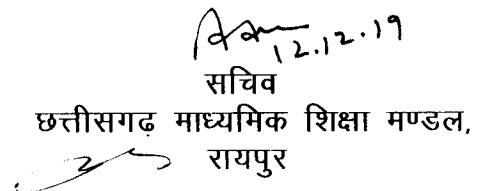 12.12.19
सचिव
छत्तीसगढ़ माध्यमिक शिक्षा मण्डल,
रायपुर